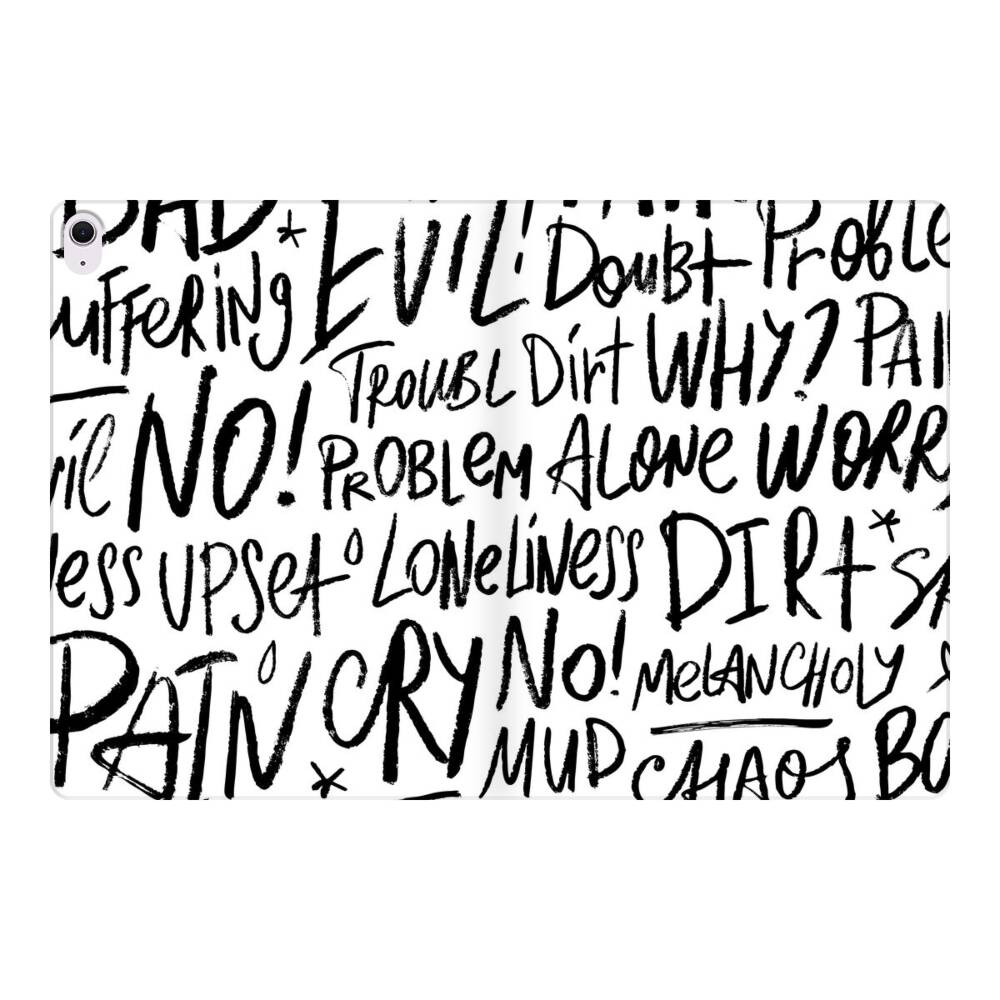 BAD * EVIL! PAIN Doubt Proble
uffering
TROUBL Dirt WHY? PAI
vil NO! PROBLEM ALONE WORR
ess UPSET LONELINESS DIRT * SA
PAIN CRY NO! MELANCHOLY
* MUD CHAOS BO